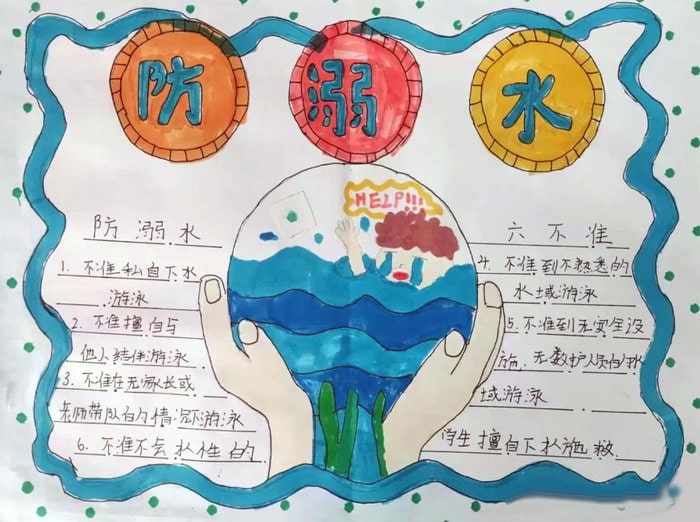 防溺水
HELP!!!
防溺水
1. 不准私自下水
游泳
2. 不准擅自与
他人结伴游泳
3. 不准在无家长或
老师带队的情况下游泳
六不准
4. 不准到不熟悉的
水域游泳
5. 不准到无安全设
施、无救护人员的水
域游泳
6. 不准不会水性的
学生擅自下水施救